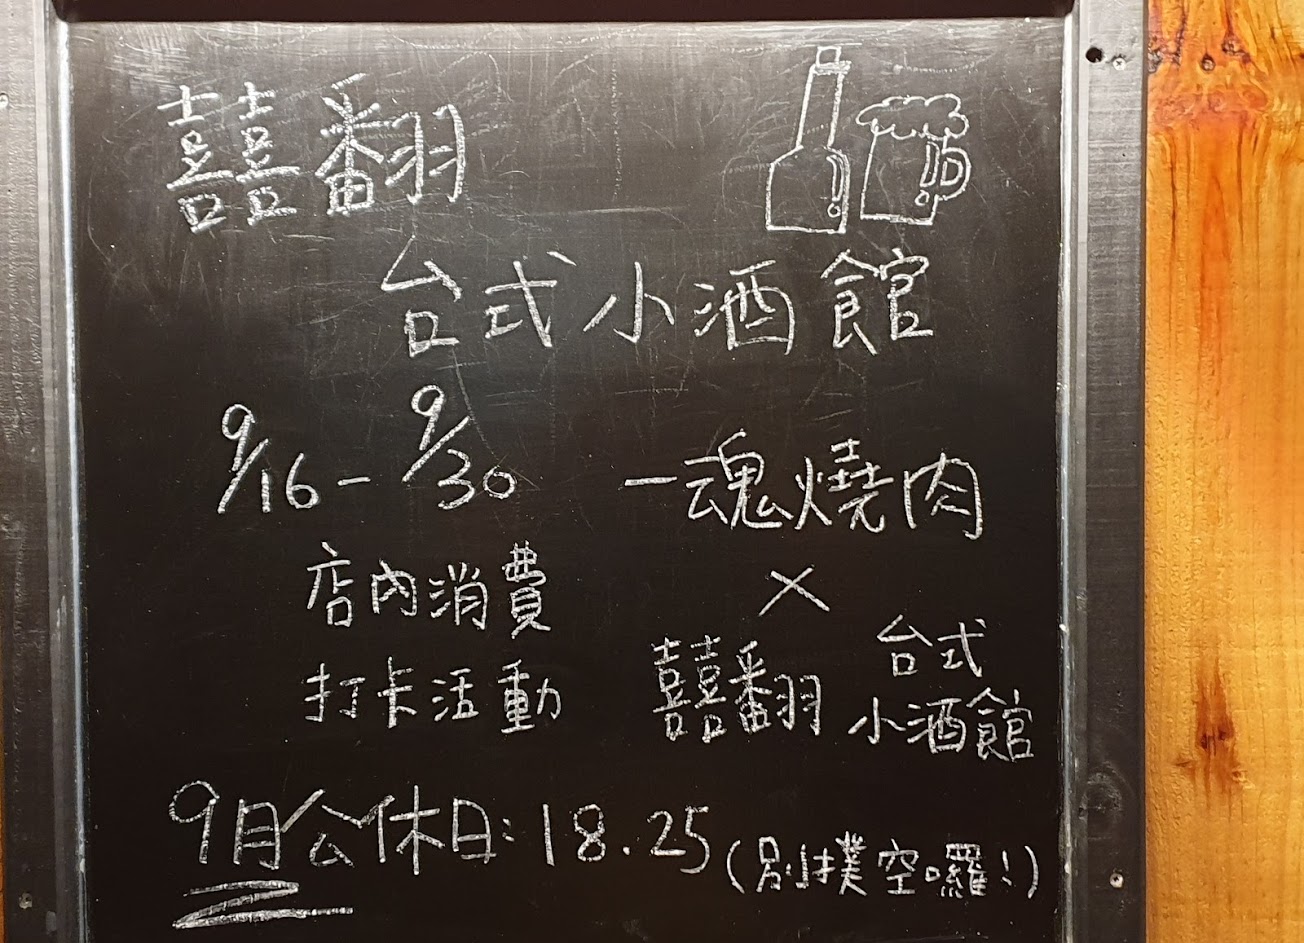 囍翻
台式小酒館
9/16-9/30
店內消費
打卡活動
一魂燒肉
×
囍翻
台式
小酒館
9月公休日:18.25(別撲空囉!)